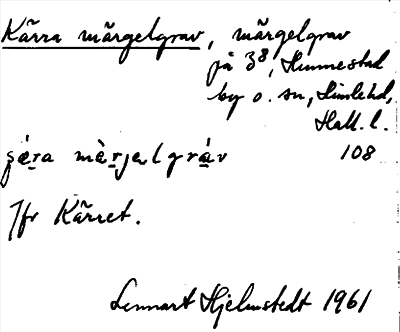 Kärra märgelgrav, märgelgrav
på 3⁸, Hunnestad
by o. sn, Himlehd,
Hall. l.
108
Jfr Kärret.
Lennart Hjelmstedt 1961